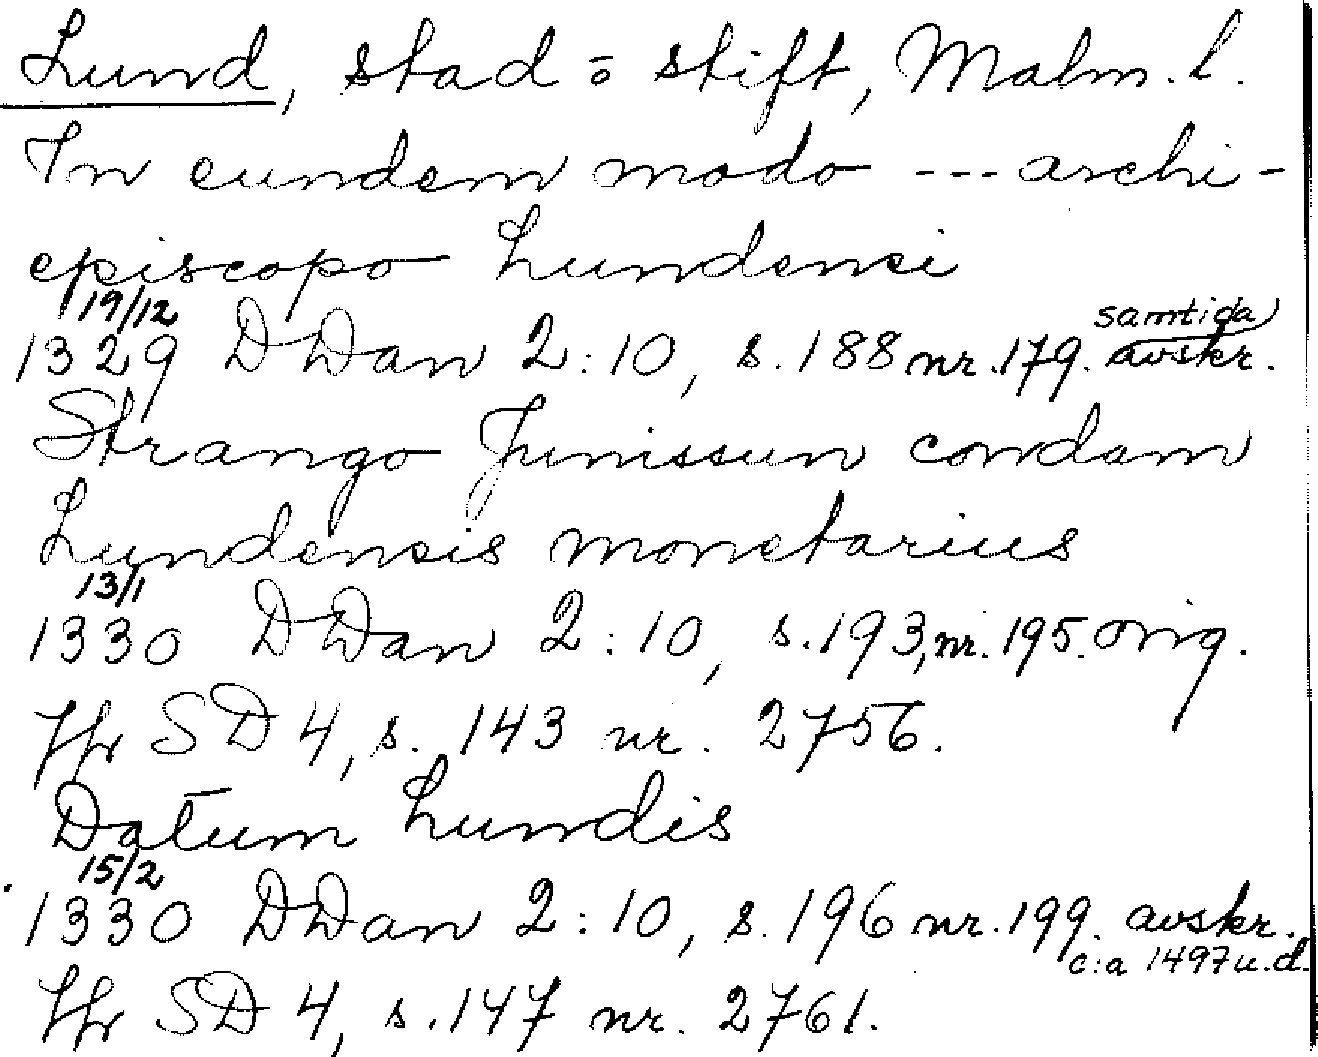 Lund, stad o stift, Malm. l.
In eundem modo --- archi-
episcopo Lundensi
19/12
1329 DDan 2:10, s. 188 nr. 179. samtida avskr.
Strango Junissun condam
Lundensis monetarius
13/1
1330 DDan 2:10, s. 193, nr. 195. orig.
Jfr SD 4, s. 143 nr. 2756.
Datum Lundis
15/2
1330 DDan 2:10, s. 196 nr. 199. avskr.
c:a 1497 u.d.
Jfr SD 4, s. 147 nr. 2761.